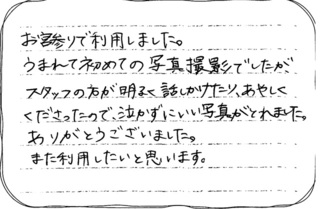 お宮参りで利用しました。
うまれて初めての写真撮影でしたが、
スタッフの方が明るく話しかけたり、あやしく
くださったので、泣かずにいい写真がとれました。
ありがとうございました。
また利用したいと思います。